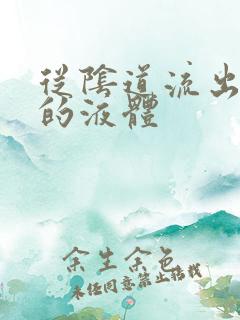 從陰道流出
的液體
余生余色
未经同意禁止搭载